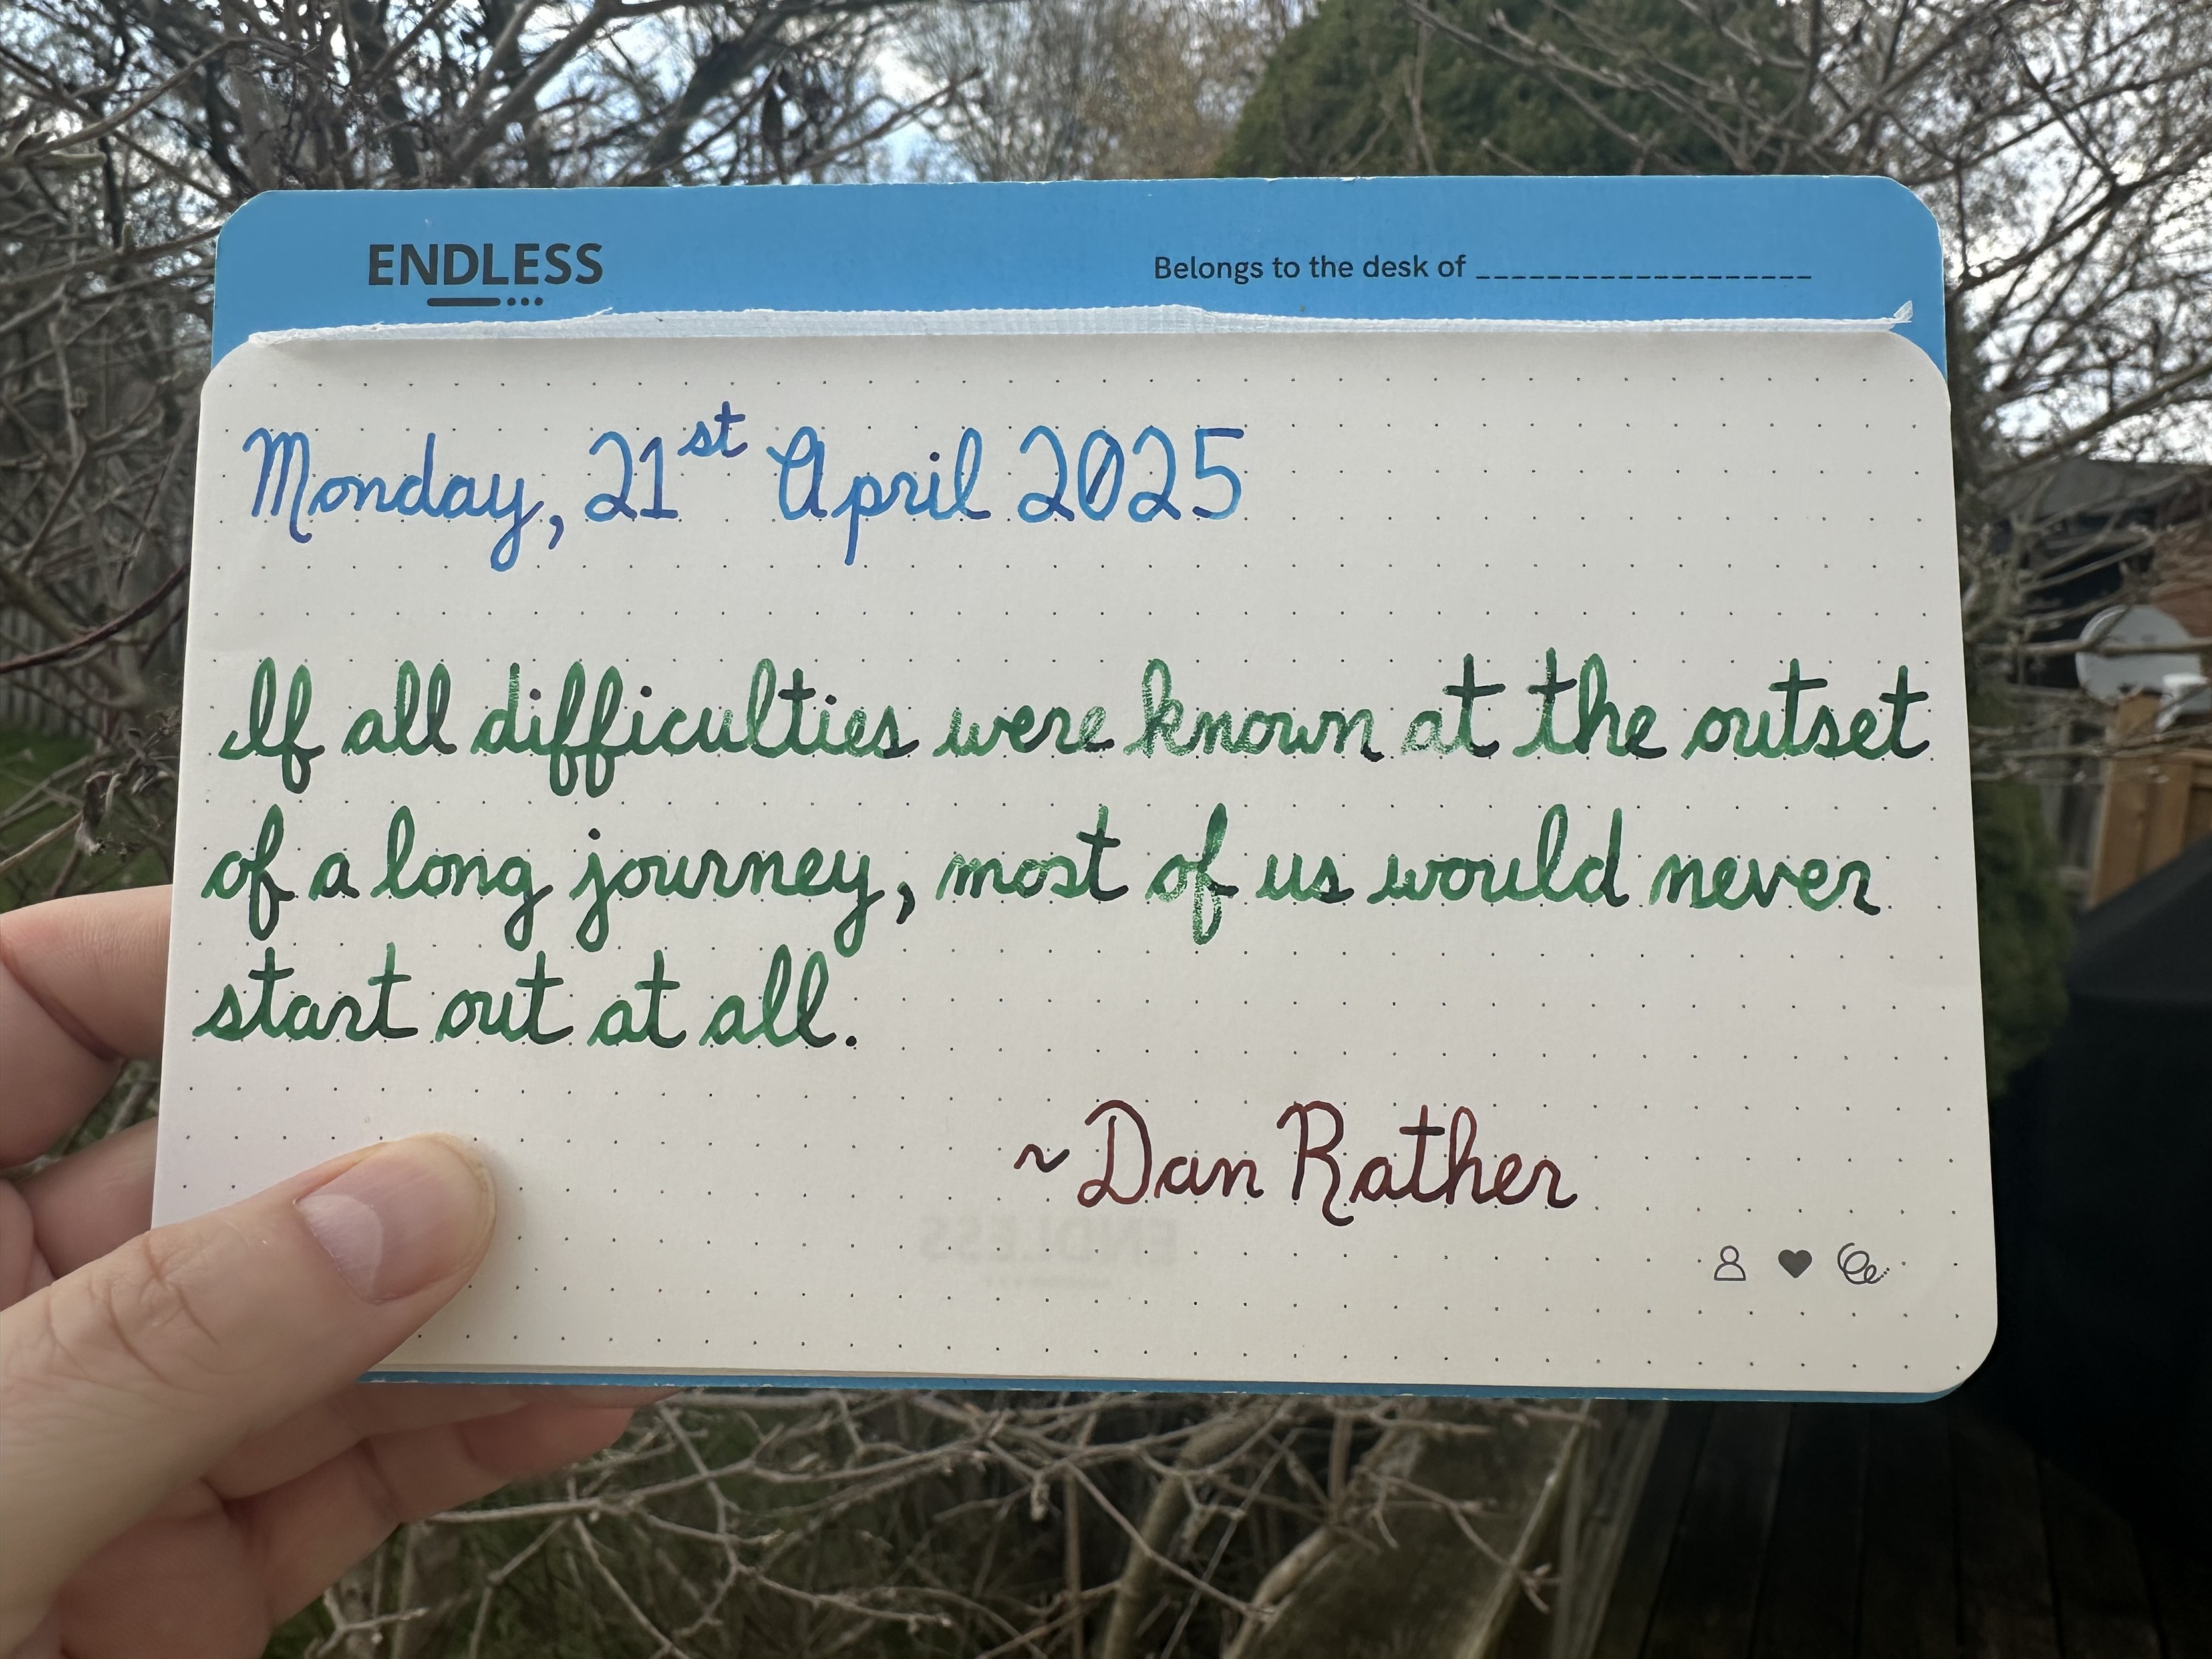 ENDLESS
Belongs to the desk of ___________________
Monday, 21st April 2025
If all difficulties were known at the outset
of a long journey, most of us would never
start out at all.
~Dan Rather
ENDLESS